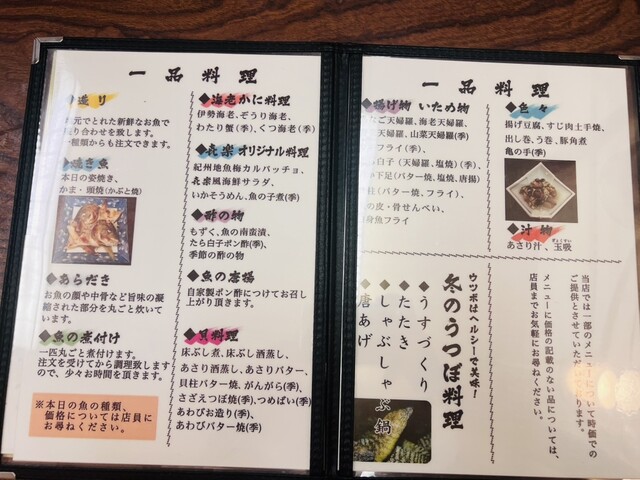 一品料理
造り
元でとれた新鮮なお魚で
り合わせを致します。
種類からも注文できます。
焼き魚
本日の姿焼き、
かま・頭焼(かぶと焼)
◆あらだき
お魚の顔や中骨など旨味の凝
縮された部分を丸ごと炊いて
います。
◆魚の煮付け
一匹丸ごと煮付けます。
注文を受けてから調理致します
ので、少々お時間を頂きます。
※本日の魚の種類、
価格については店員に
お尋ねください。
◆海老かに料理
伊勢海老、ぞうり海老、
わたり蟹(季)、くつ海老(季)
◆㐂楽オリジナル料理
紀州地魚梅カルパッチョ、
㐂楽風海鮮サラダ、
いかそうめん、魚の子煮(季)
◆酢の物
もずく、魚の南蛮漬、
たら白子ポン酢(季)、
季節の酢の物
◆魚の唐揚
自家製ポン酢につけてお召し
上がり頂きます。
◆貝料理
床ぶし煮、床ぶし酒蒸し、
あさり酒蒸し、あさりバター、
貝柱バター焼、がんがら(季)、
さざえつぼ焼(季)、つめばい(季)
あわびお造り(季)、
あわびバター焼(季)
一品料理
揚げ物 いため物
なご天婦羅、海老天婦羅、
天婦羅、山菜天婦羅(季)
フライ(季)、
白子(天婦羅、塩焼)(季)、
下足(バター焼、塩焼、唐揚)
柱(バター焼、フライ)、
の皮・骨せんべい、
身魚フライ
◆色々
揚げ豆腐、すじ肉土手焼、
出し巻、う巻、豚角煮
亀の手(季)
◆汁物
あさり汁、玉吸
ぎょくすい
当店では一部のメニューについて時価での
ご提供とさせていただ
ります。
メニューに価格の記載のない品については、
店員までお気軽にお尋ねください。
冬のうつぼ料理
ウツボはヘルシーで美味!
◆うすづくり
◆たたき
◆しゃぶしゃぶ鍋
◆唐あげ